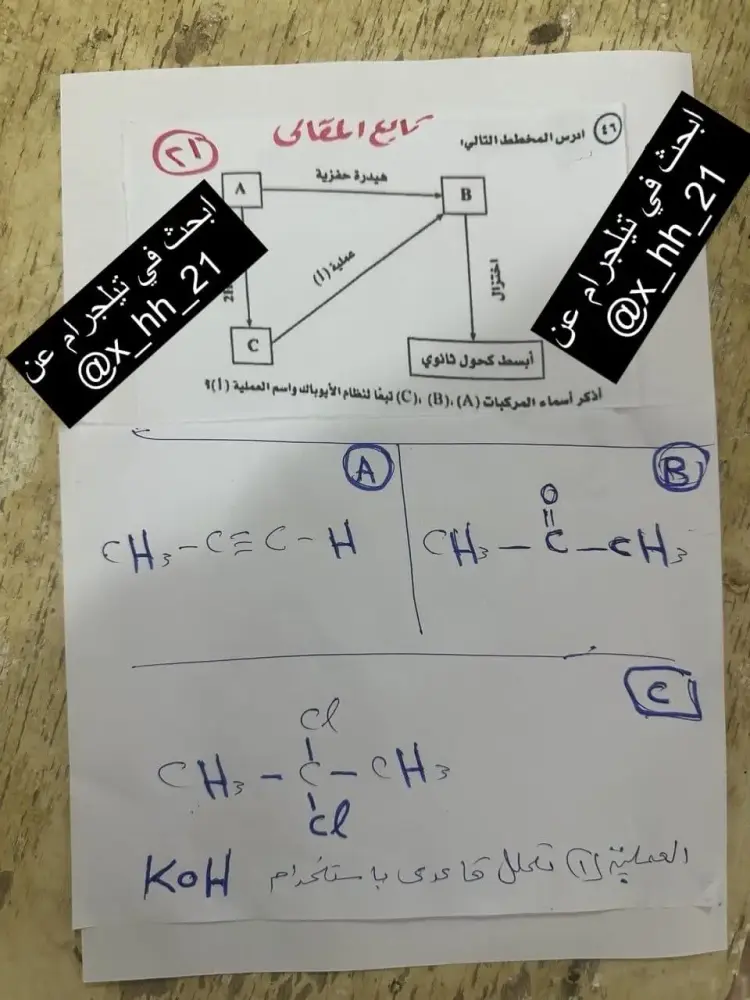 تابع المقالى
٢١
٤٦ ادرس المخطط التالي:
A
هيدرة حفزية
B
عملية (1)
اختزال
C
أبسط كحول ثانوي
أذكر أسماء المركبات (A)، (B)، (C) تبعًا لنظام الأيوباك واسم العملية (1)؟
ابحث في تيلجرام عن
@x_hh_21
ابحث في تيلجرام عن
@x_hh_21
A
CH₃-C≡C-H
B
O
CH₃-C-CH₃
C
Cl
CH₃-C-CH₃
Cl
العملية (١) تحلل قاعدى باستخدام KOH